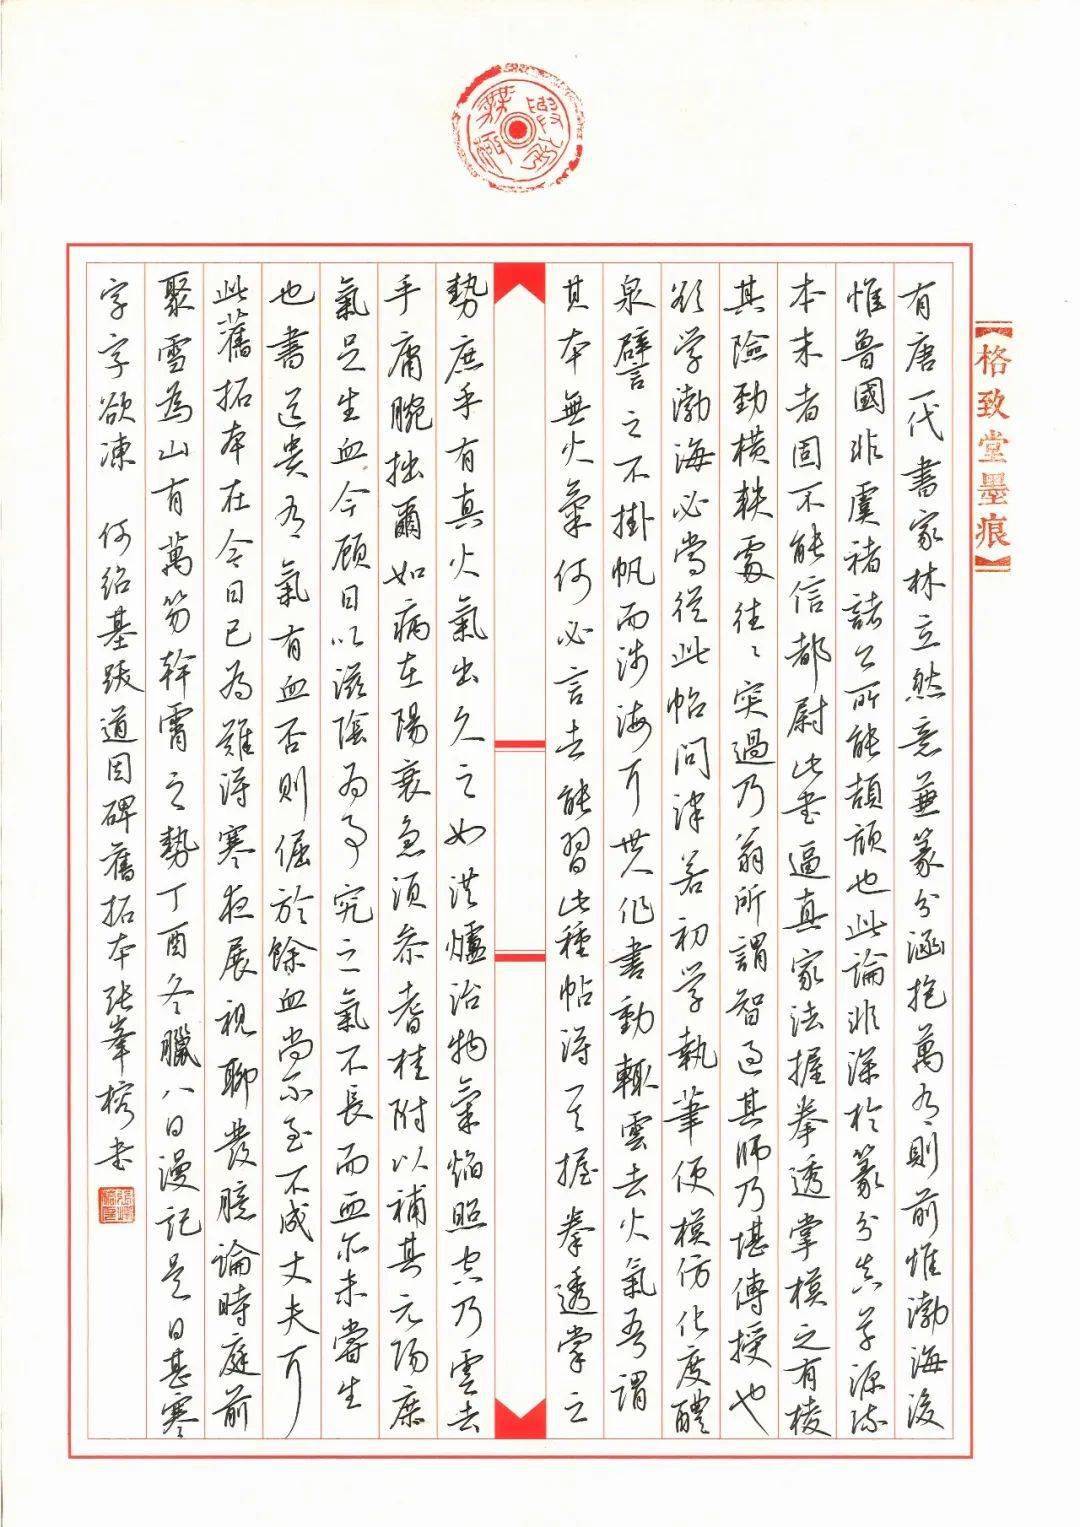 格致堂墨痕
有唐一代書家林立然意兼篆分涵抱萬有則前惟渤海後
惟魯國非虞褚諸公所能頡頏也此論非深於篆分真草源流
本末者固不能信都尉此書逼真家法握拳透掌模之有棱
其險勁橫軼處往往突過乃翁所謂智過其師乃堪傳授也
欲學渤海必當從此帖問津若初學執筆便模仿化度醴
泉譬之不掛帆而涉海可世人作書動輒云去火氣吾謂
其本無火氣何必言去能習此種帖得其握拳透掌之
勢庶乎有真火氣出久之如洪爐冶物氣焰照空乃云去
手庸腕拙爾如病在陽衰急須參耆桂附以補其元陽庶
氣足生血今顧日以滋陰為事究之氣不長而血亦未嘗生
也書道貴有氣有血否則倔於餘血尚不至不成丈夫可
此舊拓本在今日已為難得寒夜展視聊發臆論時庭前
聚雪為山有萬笏幹霄之勢丁酉冬臘八日漫記是日甚寒
字字欲凍 何紹基跋道因碑舊拓本張峯榕書